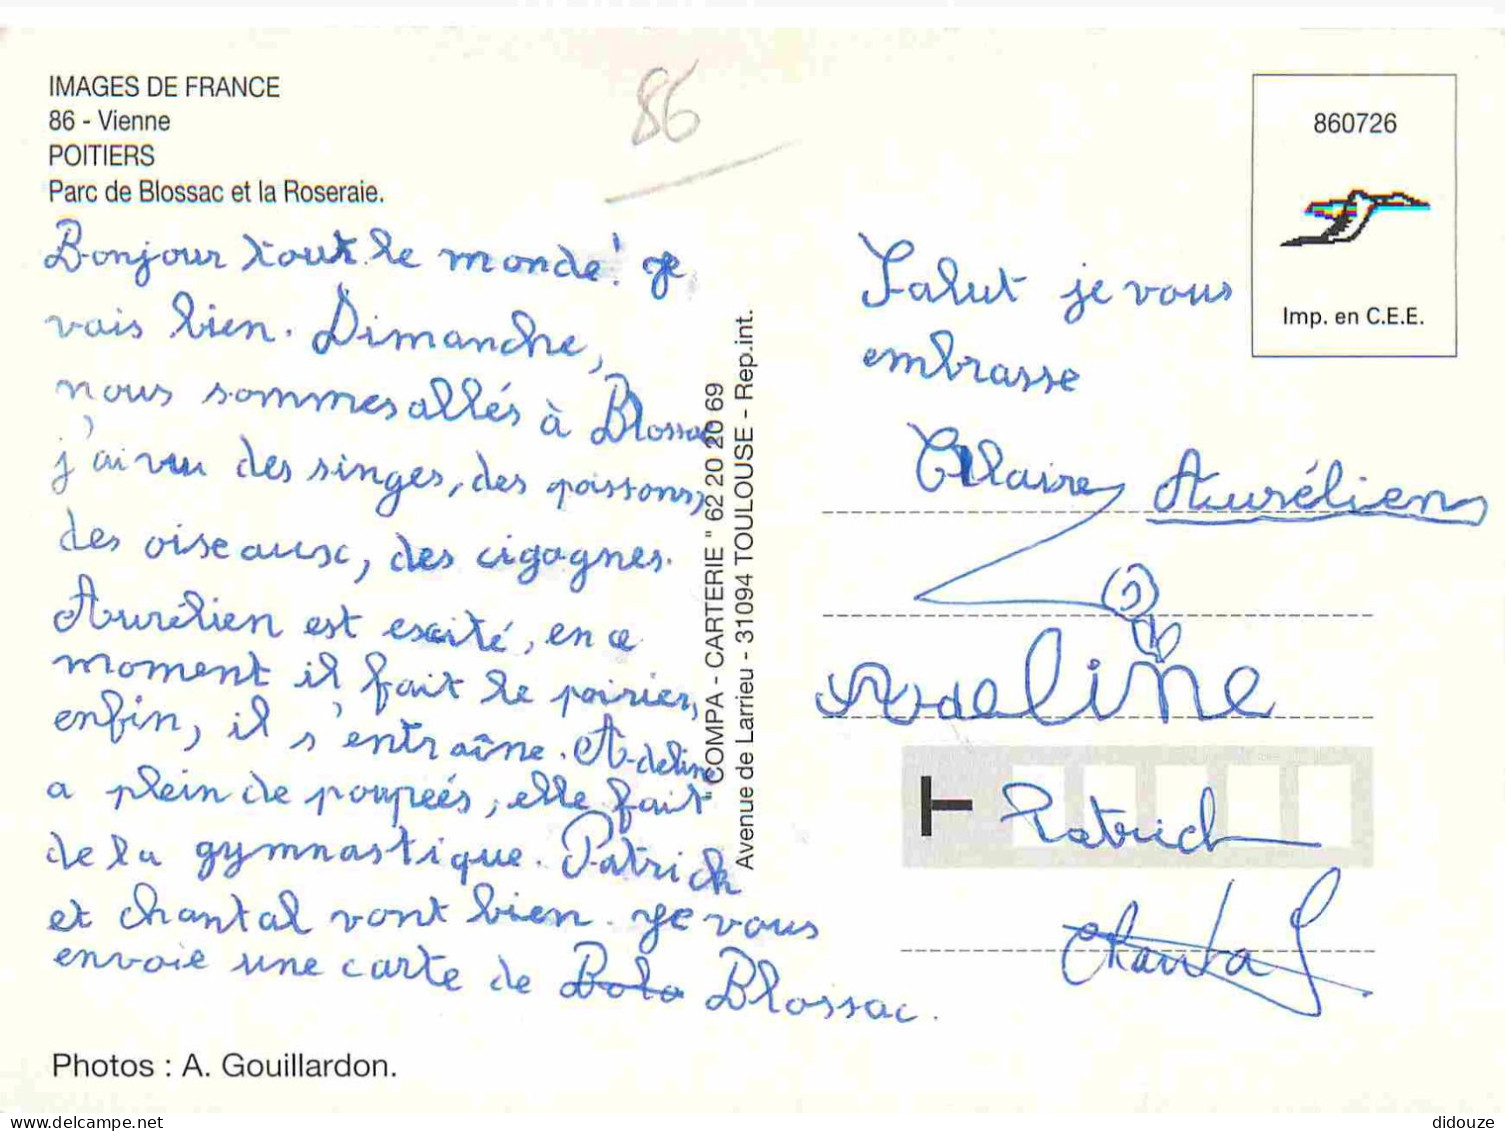 IMAGES DE FRANCE
86 - Vienne
POITIERS
Parc de Blossac et la Roseraie.
86
860726
Imp. en C.E.E.
Bonjour tout le monde! je
vais bien. Dimanche,
nous sommes allés à Blossac
j'ai vu des singes, des poissons,
des oiseaux, des cigognes.
Aurélien est excité, en ce
moment il fait le poirier,
enfin, il s'entraîne. Adeline
a plein de poupées, elle fait
de la gymnastique. Patrick
et chantal vont bien. je vous
envoie une carte de Bola Blossac.
Photos : A. Gouillardon.
"COMPA - CARTERIE" 62 20 20 69
Avenue de Larrieu - 31094 TOULOUSE - Rep.int.
Salut je vous
embrasse
Claire Aurélien
Adeline
Patrick
Chantal
www.delcampe.net
didouze